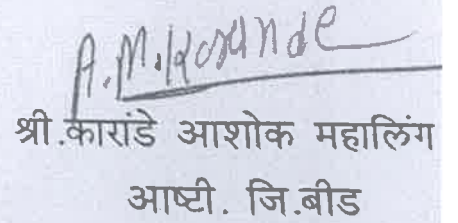 A.M.Karande
श्री.कारांडे आशोक महालिंग
आष्टी. जि.बीड